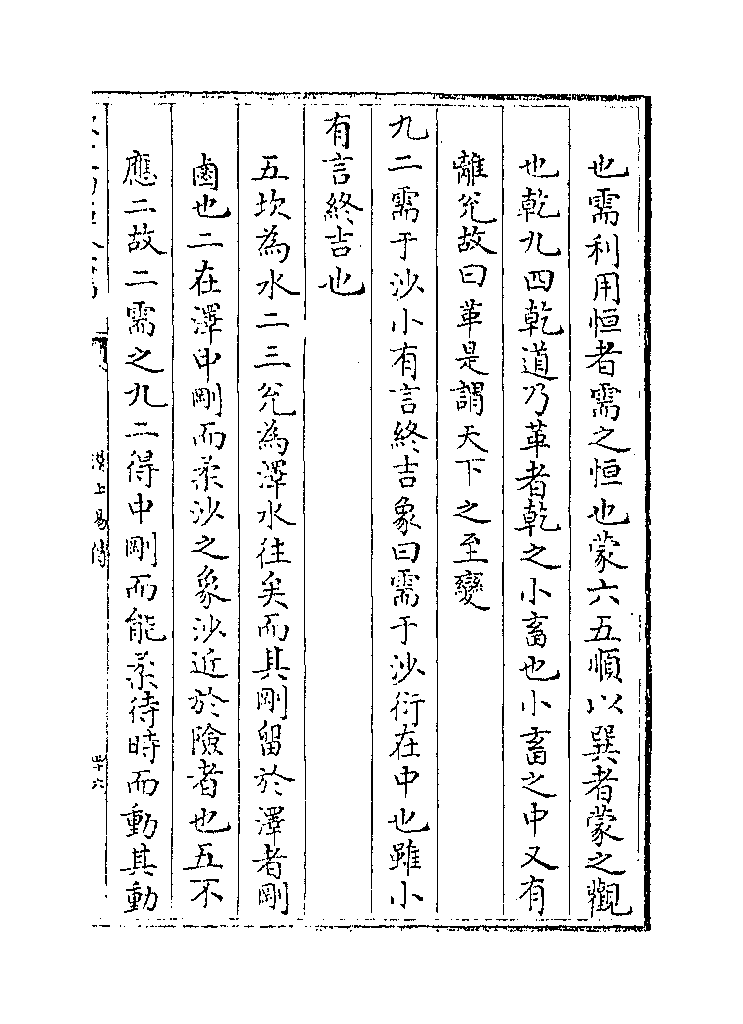 也需利用恒者需之恒也蒙六五順以巽者蒙之觀
也乾九四乾道乃革者乾之小畜也小畜之中又有
離兊故曰革是謂天下之至變
九二需于沙小有言終吉象曰需于沙衍在中也雖小
有言終吉也
五坎為水二三兊為澤水往矣而其剛留於澤者剛
鹵也二在澤中剛而柔沙之象沙近於險者也五不
應二故二需之九二得中剛而能柔待時而動其動
漢上易傳
四十六